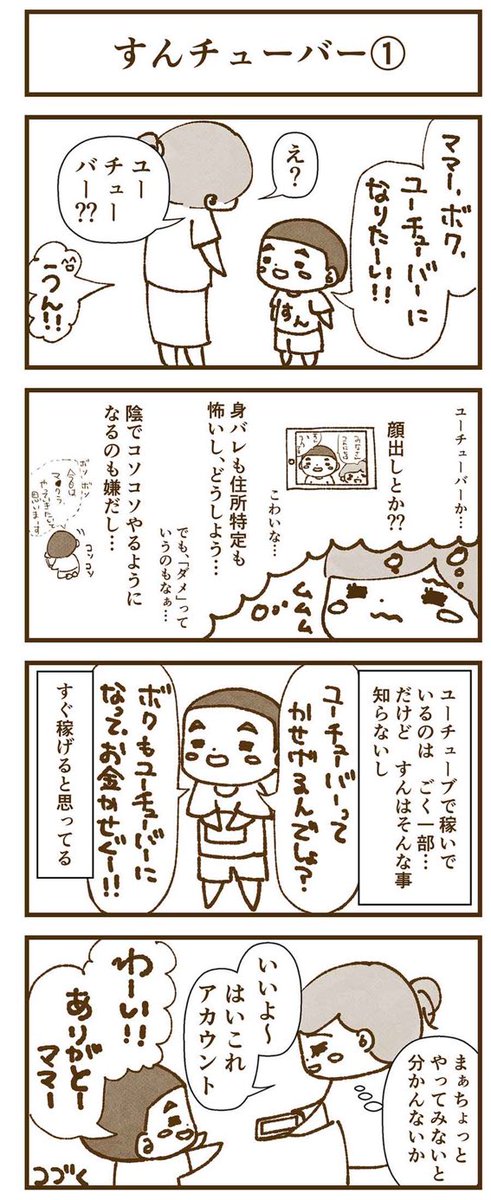 すんチューバー①
ママー、ボク、
ユーチューバーに
なりたーい!!
え?
ユー
チュー
バー??
すん
うん!!
ユーチューバーか…
顔出しとか??
みなさん
こんにちは
こわいな…
身バレも住所特定も
怖いし、どうしよう…
でも、「ダメ」って
いうのもなぁ…
陰でコソコソやるように
なるのも嫌だし…
ボソ
ボソ
今日は
マ●クラ
やっていきたいと
思いまーす
コソ
コソ
ムムム
ユーチューブで稼いで
いるのは ごく一部…
だけど すんはそんな事
知らないし
ユーチューバーって
かせげるんでしょ?
ボクもユーチューバーに
なって、お金かせぐー!!
すぐ稼げると思ってる
まぁちょっと
やってみないと
分かんないか
いいよ～
はいこれ
アカウント
わーい!!
ありがとー
ママー
つづく